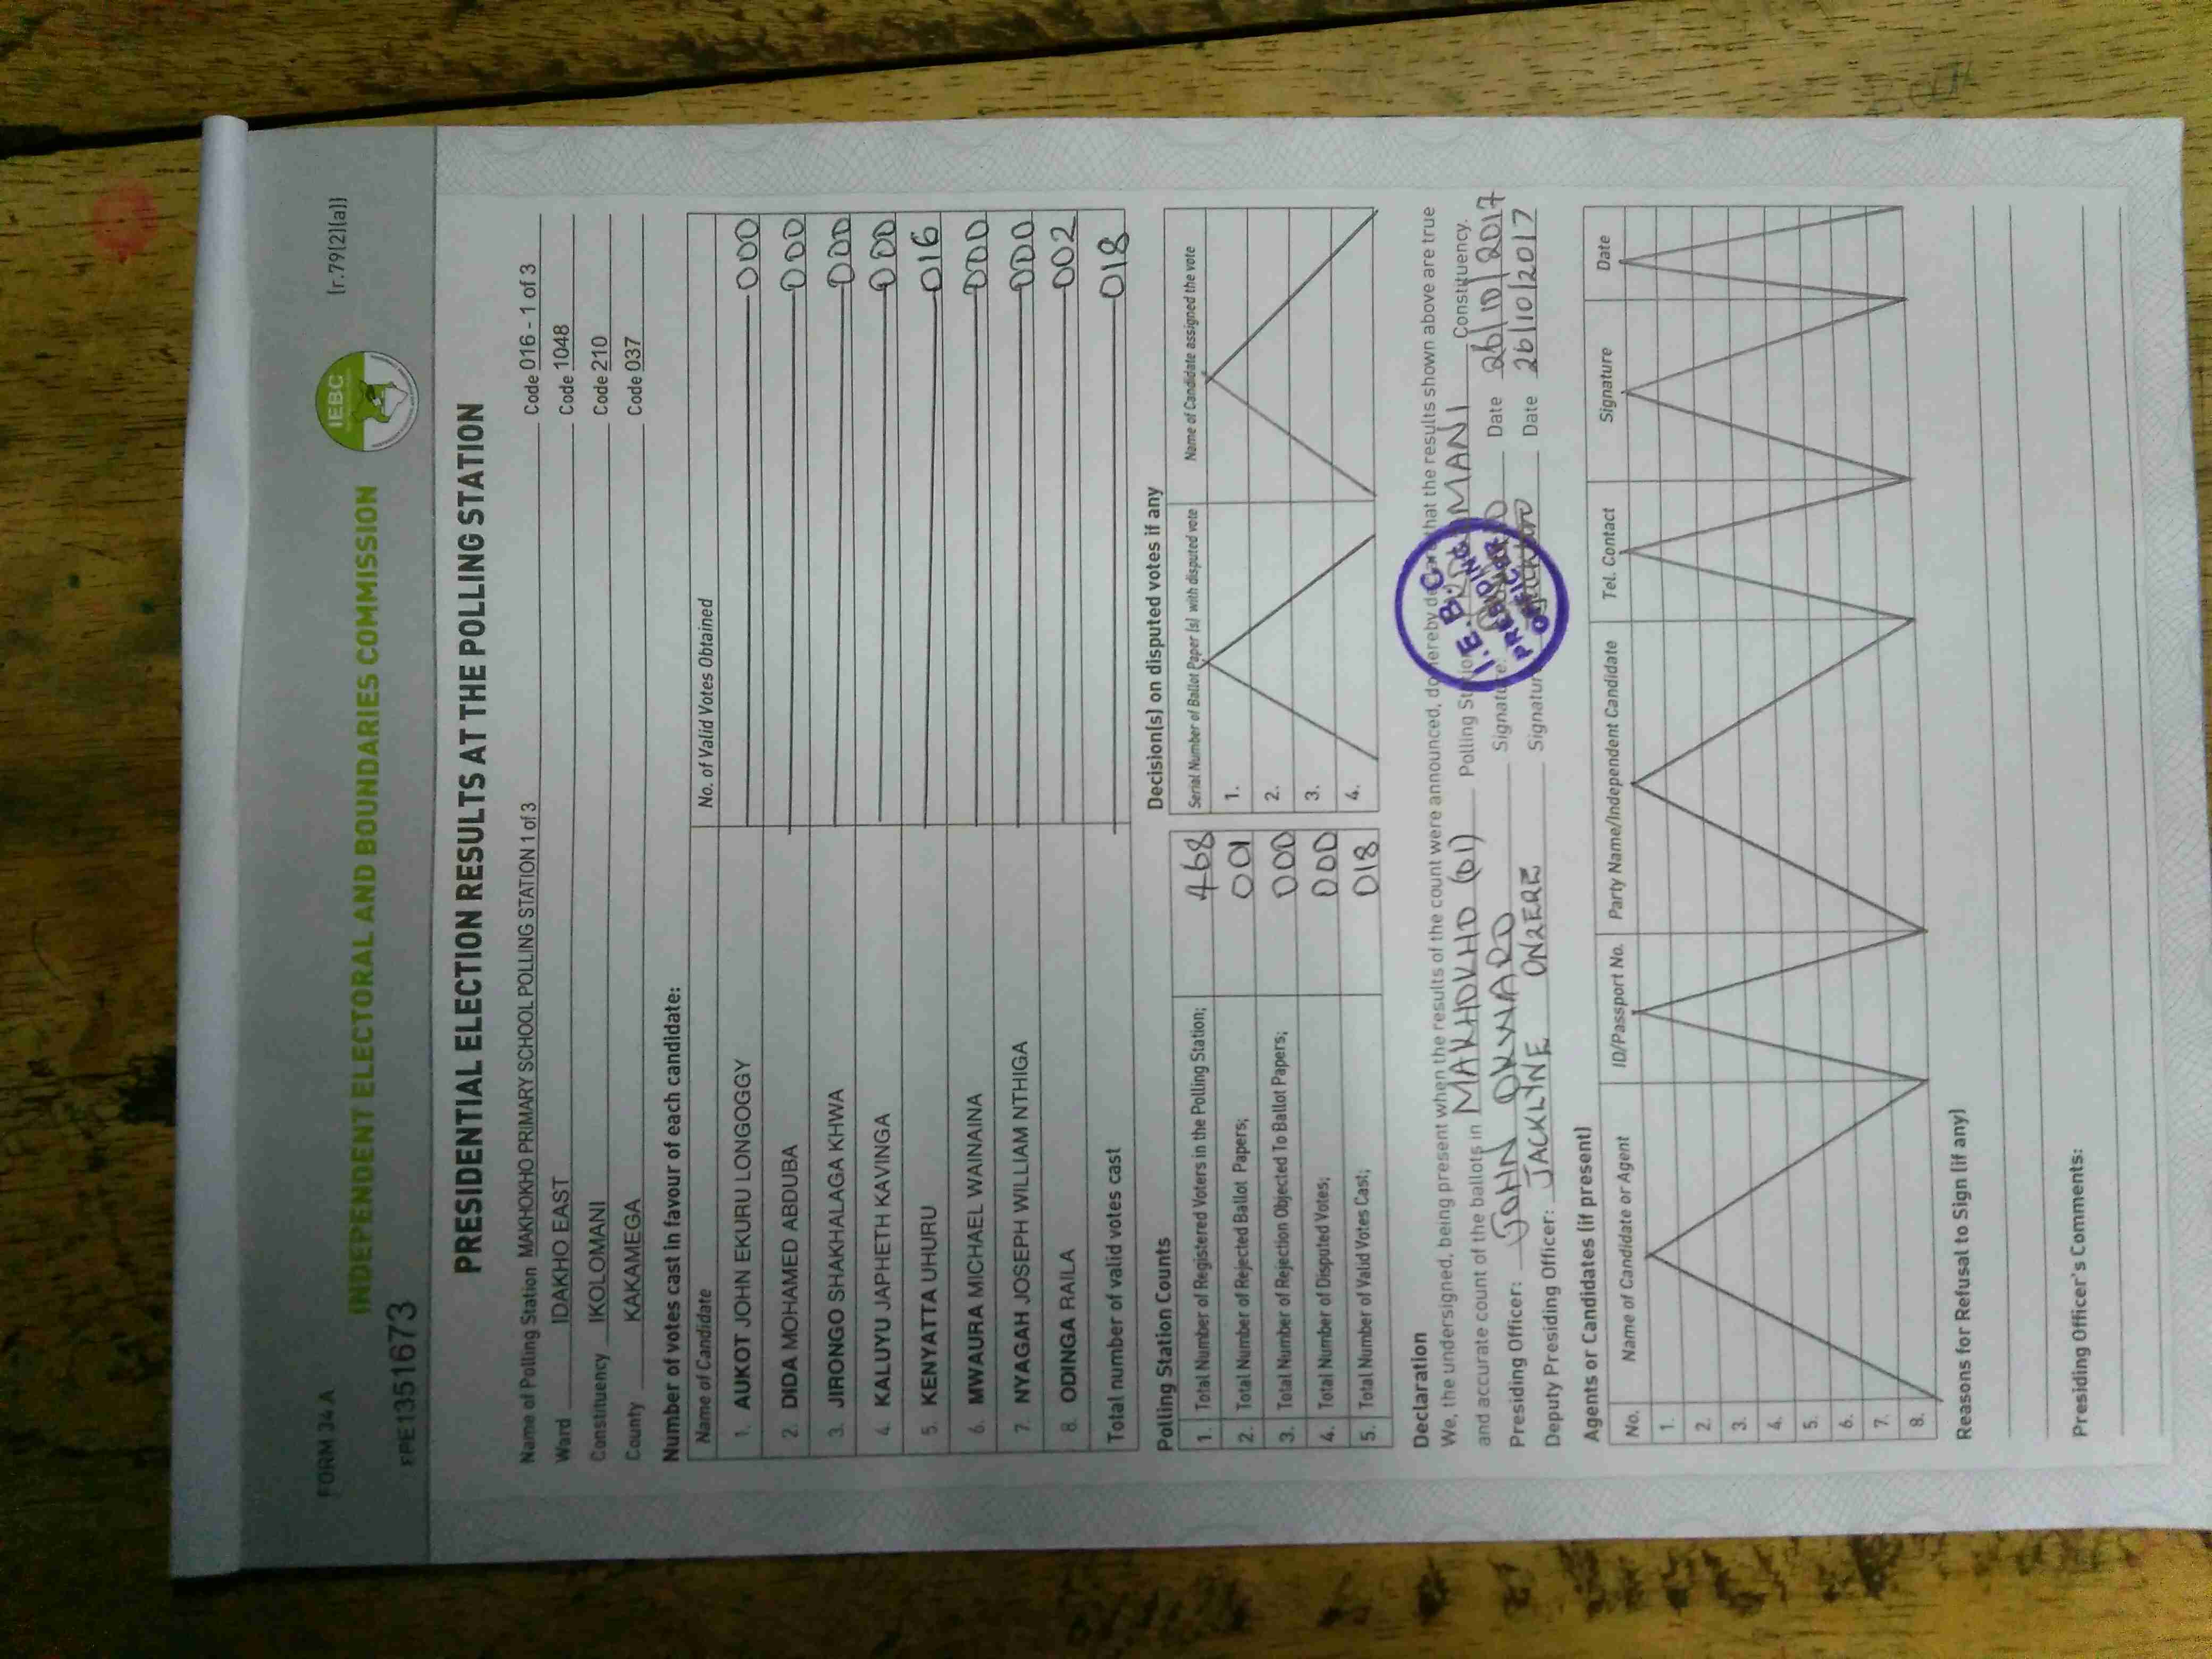 FORM 34 A
(r.79(2)(a))
IEBC
INDEPENDENT ELECTORAL AND BOUNDARIES COMMISSION
PRE13516673
PRESIDENTIAL ELECTION RESULTS AT THE POLLING STATION
Name of Polling Station MAKHOKHO PRIMARY SCHOOL POLLING STATION 1 of 3 Code 016 - 1 of 3
Ward IDAKHO EAST Code 1048
Constituency IKOLOMANI Code 210
County KAKAMEGA Code 037
Number of votes cast in favour of each candidate:
Name of Candidate No. of Valid Votes Obtained
1. AUKOT JOHN EKURU LONGOGGY 000
2. DIDA MOHAMED ABDUBA 000
3. JIRONGO SHAKHALAGA KHWA 000
4. KALUYU JAPHETH KAVINGA 000
5. KENYATTA UHURU 016
6. MWAURA MICHAEL WAINAINA 000
7. NYAGAH JOSEPH WILLIAM NTHIGA 000
8. ODINGA RAILA 002
Total number of valid votes cast 018
Polling Station Counts
1. Total Number of Registered Voters in the Polling Station; 468
2. Total Number of Rejected Ballot Papers; 001
3. Total Number of Rejection Objected To Ballot Papers; 000
4. Total Number of Disputed Votes; 000
5. Total Number of Valid Votes Cast; 018
Decision(s) on disputed votes if any
Serial Number of Ballot Paper (s) with disputed vote Name of Candidate assigned the vote
1.
2.
3.
4.
Declaration
We, the undersigned, being present when the results of the count were announced, do hereby declare that the results shown above are true
and accurate count of the ballots in MAKHOKHO (01) Polling Station Constituency.
Presiding Officer: JOHN OKWARO Signature: Date 26/10/2017
Deputy Presiding Officer: JACKLYNE ONZERE Signature Date 26/10/2017
I.E.B.C
PRESIDING
OFFICER
Agents or Candidates (if present)
No. Name of Candidate or Agent ID/Passport No. Party Name/Independent Candidate Tel. Contact Signature Date
1.
2.
3.
4.
5.
6.
7.
8.
Reasons for Refusal to Sign (if any)
Presiding Officer's Comments: